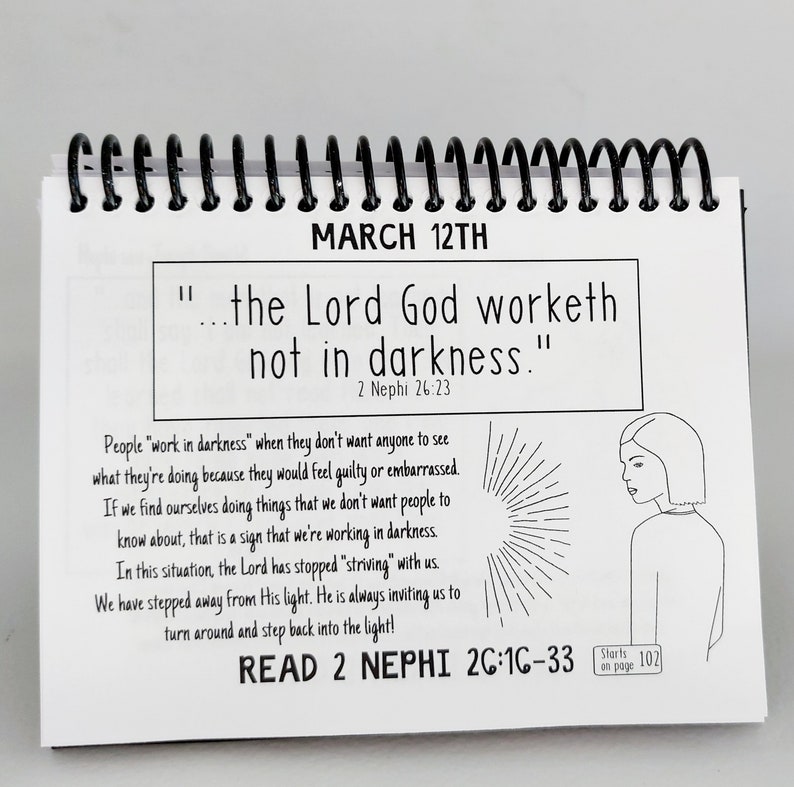 MARCH 12TH
"...the Lord God worketh
not in darkness."
2 Nephi 26:23
People "work in darkness" when they don't want anyone to see
what they're doing because they would feel guilty or embarrassed.
If we find ourselves doing things that we don't want people to
know about, that is a sign that we're working in darkness.
In this situation, the Lord has stopped "striving" with us.
We have stepped away from His light. He is always inviting us to
turn around and step back into the light!
READ 2 NEPHI 26:16-33
Starts
on page 102